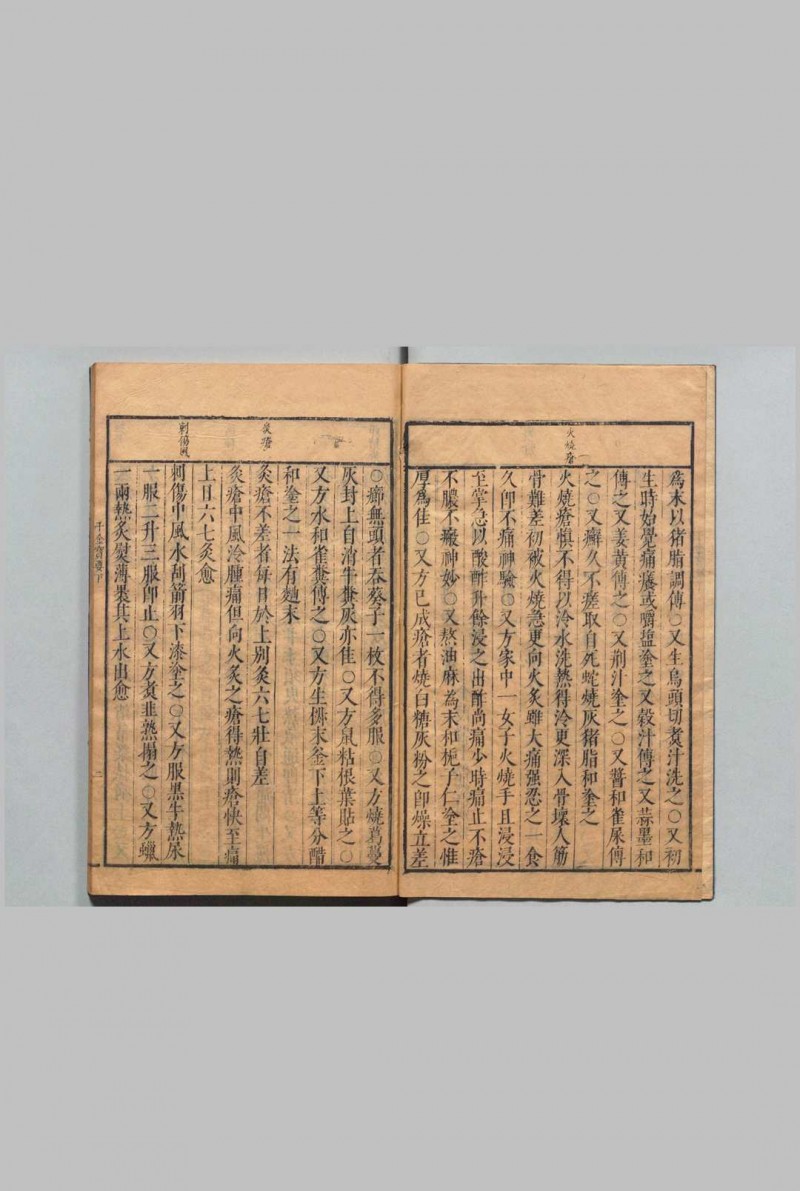 火燒瘡
為末以猪脂調傳○又生烏頭切煮汁洗之○又初
生時始覺痛癢或嚼盐塗之又穀汁傳之又蒜墨和
傳之又姜黄傳之○又荆汁塗之○又醬和雀屎傳
之○又癬久不瘥取自死蛇燒灰猪脂和塗之
火燒瘡慎不得以冷水洗熱得冷更深入骨壞人筋
骨難差初被火燒急更向火炙雖大痛强忍之一食
久卽不痛神驗○又方家中一女子火燒手且浸浸
至掌急以酸酢升餘浸之出酢尚痛少時痛止不瘡
不膿不瘢神妙○又熬油麻為末和梔子仁塗之惟
厚為佳○又方已成瘡者燒白糖灰粉之卽燥直差
炙瘡
刺傷風
○癤無頭者吞葵子一枚不得多服○又方燒葛蔓
灰封上自消牛糞灰亦佳○又方鼠粘根葉貼之○
又方水和雀糞傳之○又方生末釜下土等分醋
和塗之一法有麵末
灸瘡不差者每日於上别灸六七壯自差
灸瘡中風冷腫痛但向火炙之瘡得熱則瘡快至痛
上日六七灸愈
刺傷中風水刮箭羽下漆塗之○又方服黑牛熱尿
一服二升三服卽止○又方煮韭熟搨之○又方蠟
一兩熱炙熨薄裹其上水出愈
千金寳要下
二